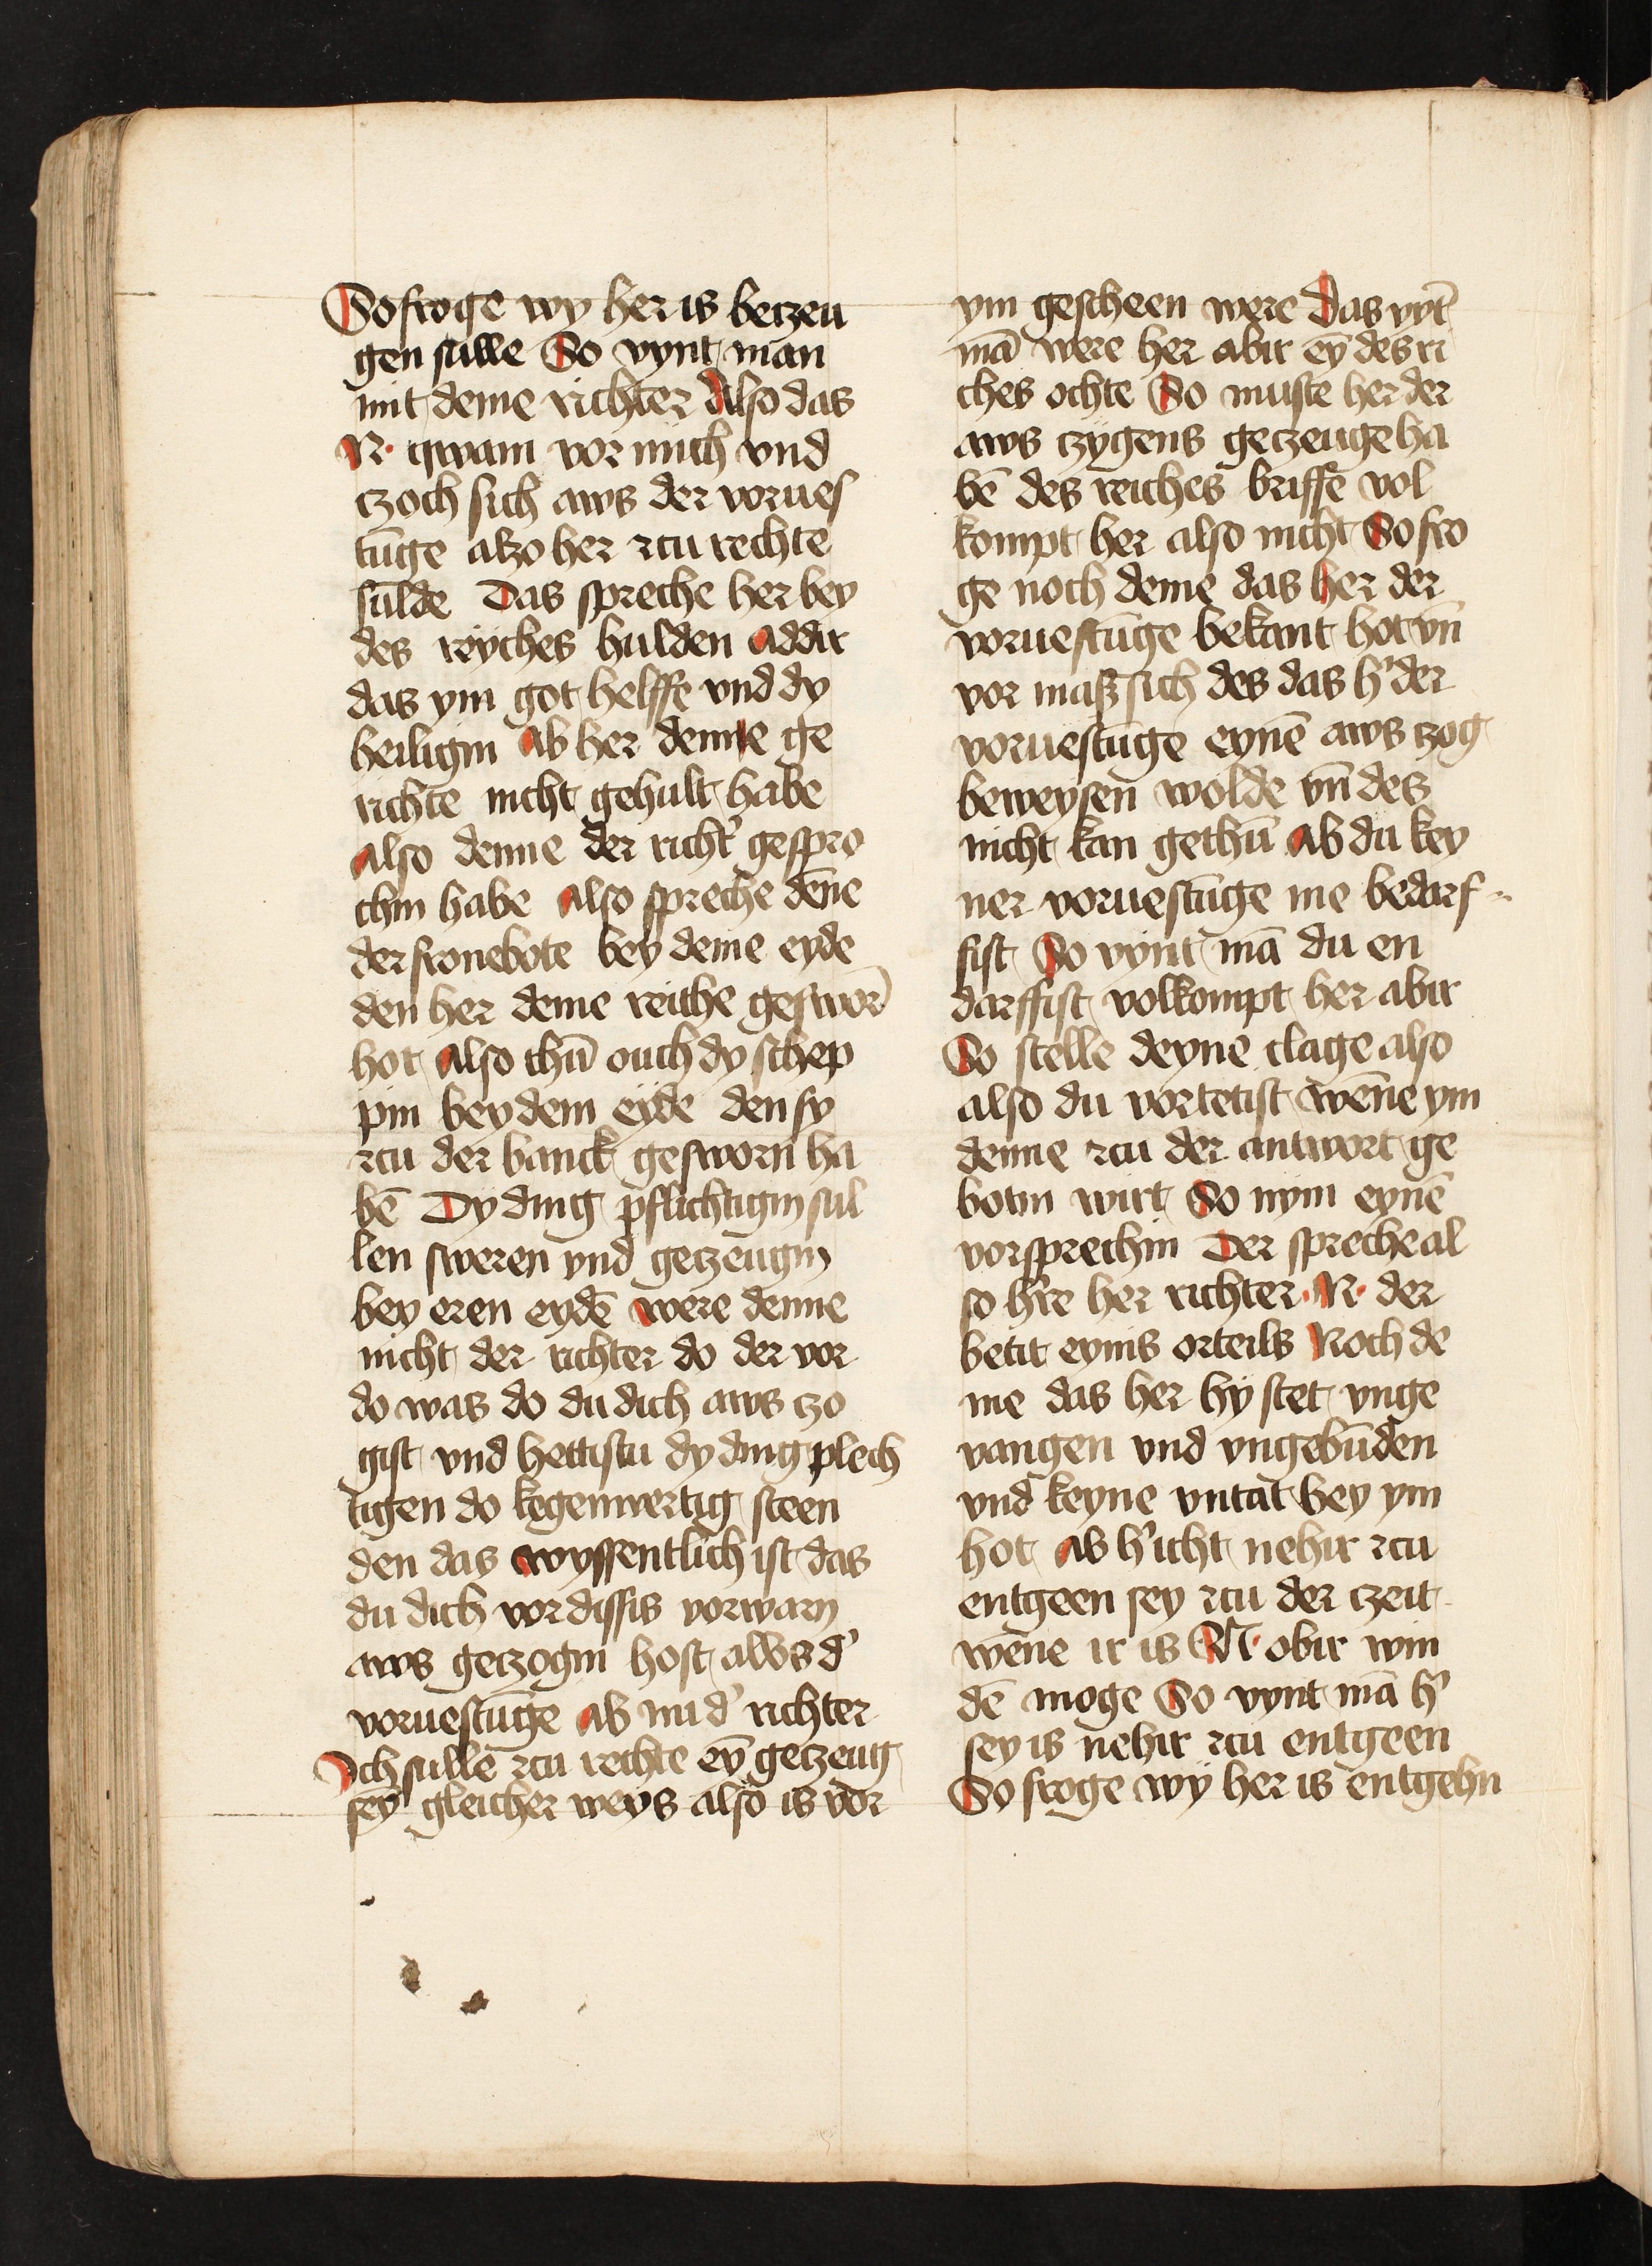 So froge wy her is betzeu
gen sulle So vynt man
mit deme richter Also das
N· qwam vor mich vnd
czoch sich aws der vorues
tūge alzo her zcu rechte
sulde Das spreche her bey
des reyches hulden Addir
das ym got helffe vnd dy
heiligin Ab her deme ge
richte nicht gehult habe
Also denne der richt' gespro
chin habe Also spreche dēne
der fronebote bey deme eyde
den her deme reiche geswor̄
hot Also thū ouch dy schep
pin bey dem eyde den sy
zcu der banck gesworn ha
bē Dy ding pflichtigin sul
len sweren vnd getzeugin
bey eren eydē were denne
nicht der richter do der vor
do was do du dich aws zo
gist vnd hettistu dy ding plech
tigen do kegenwertig steen
den das wyssentlich ist das
du dich vor dissis vorwarn
aws getzogin host alws d'
voruestūge Ab nu d' richter
Ich sulle zcu rechte eȳ getzeug
sey gleicher weys also is vor
ym gescheen were Das vyt̄
mā were her abir eȳ des ri
ches ochte So muste her der
aws czygens getzeuge ha
bē des reiches briffe vol
kompt her also nicht So fro
ge noch deme das her der
voruestūge bekant hot vn̄
vor mass sich des das h' der
voruestūge eynē aws zog
beweysen wolde vn̄ des
nicht kan gethū Ab du key
ner voruestūge me bedarf-
fist So vynt mā du en
darffist volkompt her abir
So stelle deyne clage also
also du vortetist wēne ym
denne zcu der antwort ge
botin wirt So nym eynē
vorsprechin Der spreche al
so h're her richter· N· der
betit eynis orteils Noch de
me das her hy stet vnge
vangen vnd vngebūden
vnd keyne vntat bey ym
hot Ab h' icht nehir zcu
entgeen sey zcu der czeit
wēne ir is N· obir win
dē moge So vynt mā h'
sey is nehir zcu entgeen
So froge wy her is entgehn